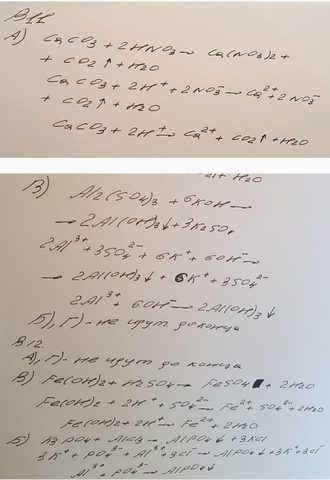 В11
А) CaCO3 + 2HNO3 → Ca(NO3)2 +
+ CO2↑ + H2O
CaCO3 + 2H⁺ + 2NO3⁻ → Ca²⁺ + 2NO3⁻
+ CO2↑ + H2O
CaCO3 + 2H⁺ → Ca²⁺ + CO2↑ + H2O
H2O
В) Al2(SO4)3 + 6KOH →
→ 2Al(OH)3↓ + 3K2SO4
2Al³⁺ + 3SO4²⁻ + 6K⁺ + 6OH⁻ →
→ 2Al(OH)3↓ + 6K⁺ + 3SO4²⁻
2Al³⁺ + 6OH⁻ → 2Al(OH)3↓
Б), Г) - не идут до конца
В12.
А), Г) - не идут до конца
В) Fe(OH)2 + H2SO4 → FeSO4 + 2H2O
Fe(OH)2 + 2H⁺ + SO4²⁻ → Fe²⁺ + SO4²⁻ + 2H2O
Fe(OH)2 + 2H⁺ → Fe²⁺ + 2H2O
Б) K3PO4 + AlCl3 → AlPO4↓ + 3KCl
3K⁺ + PO4³⁻ + Al³⁺ + 3Cl⁻ → AlPO4↓ + 3K⁺ + 3Cl⁻
Al³⁺ + PO4³⁻ → AlPO4↓